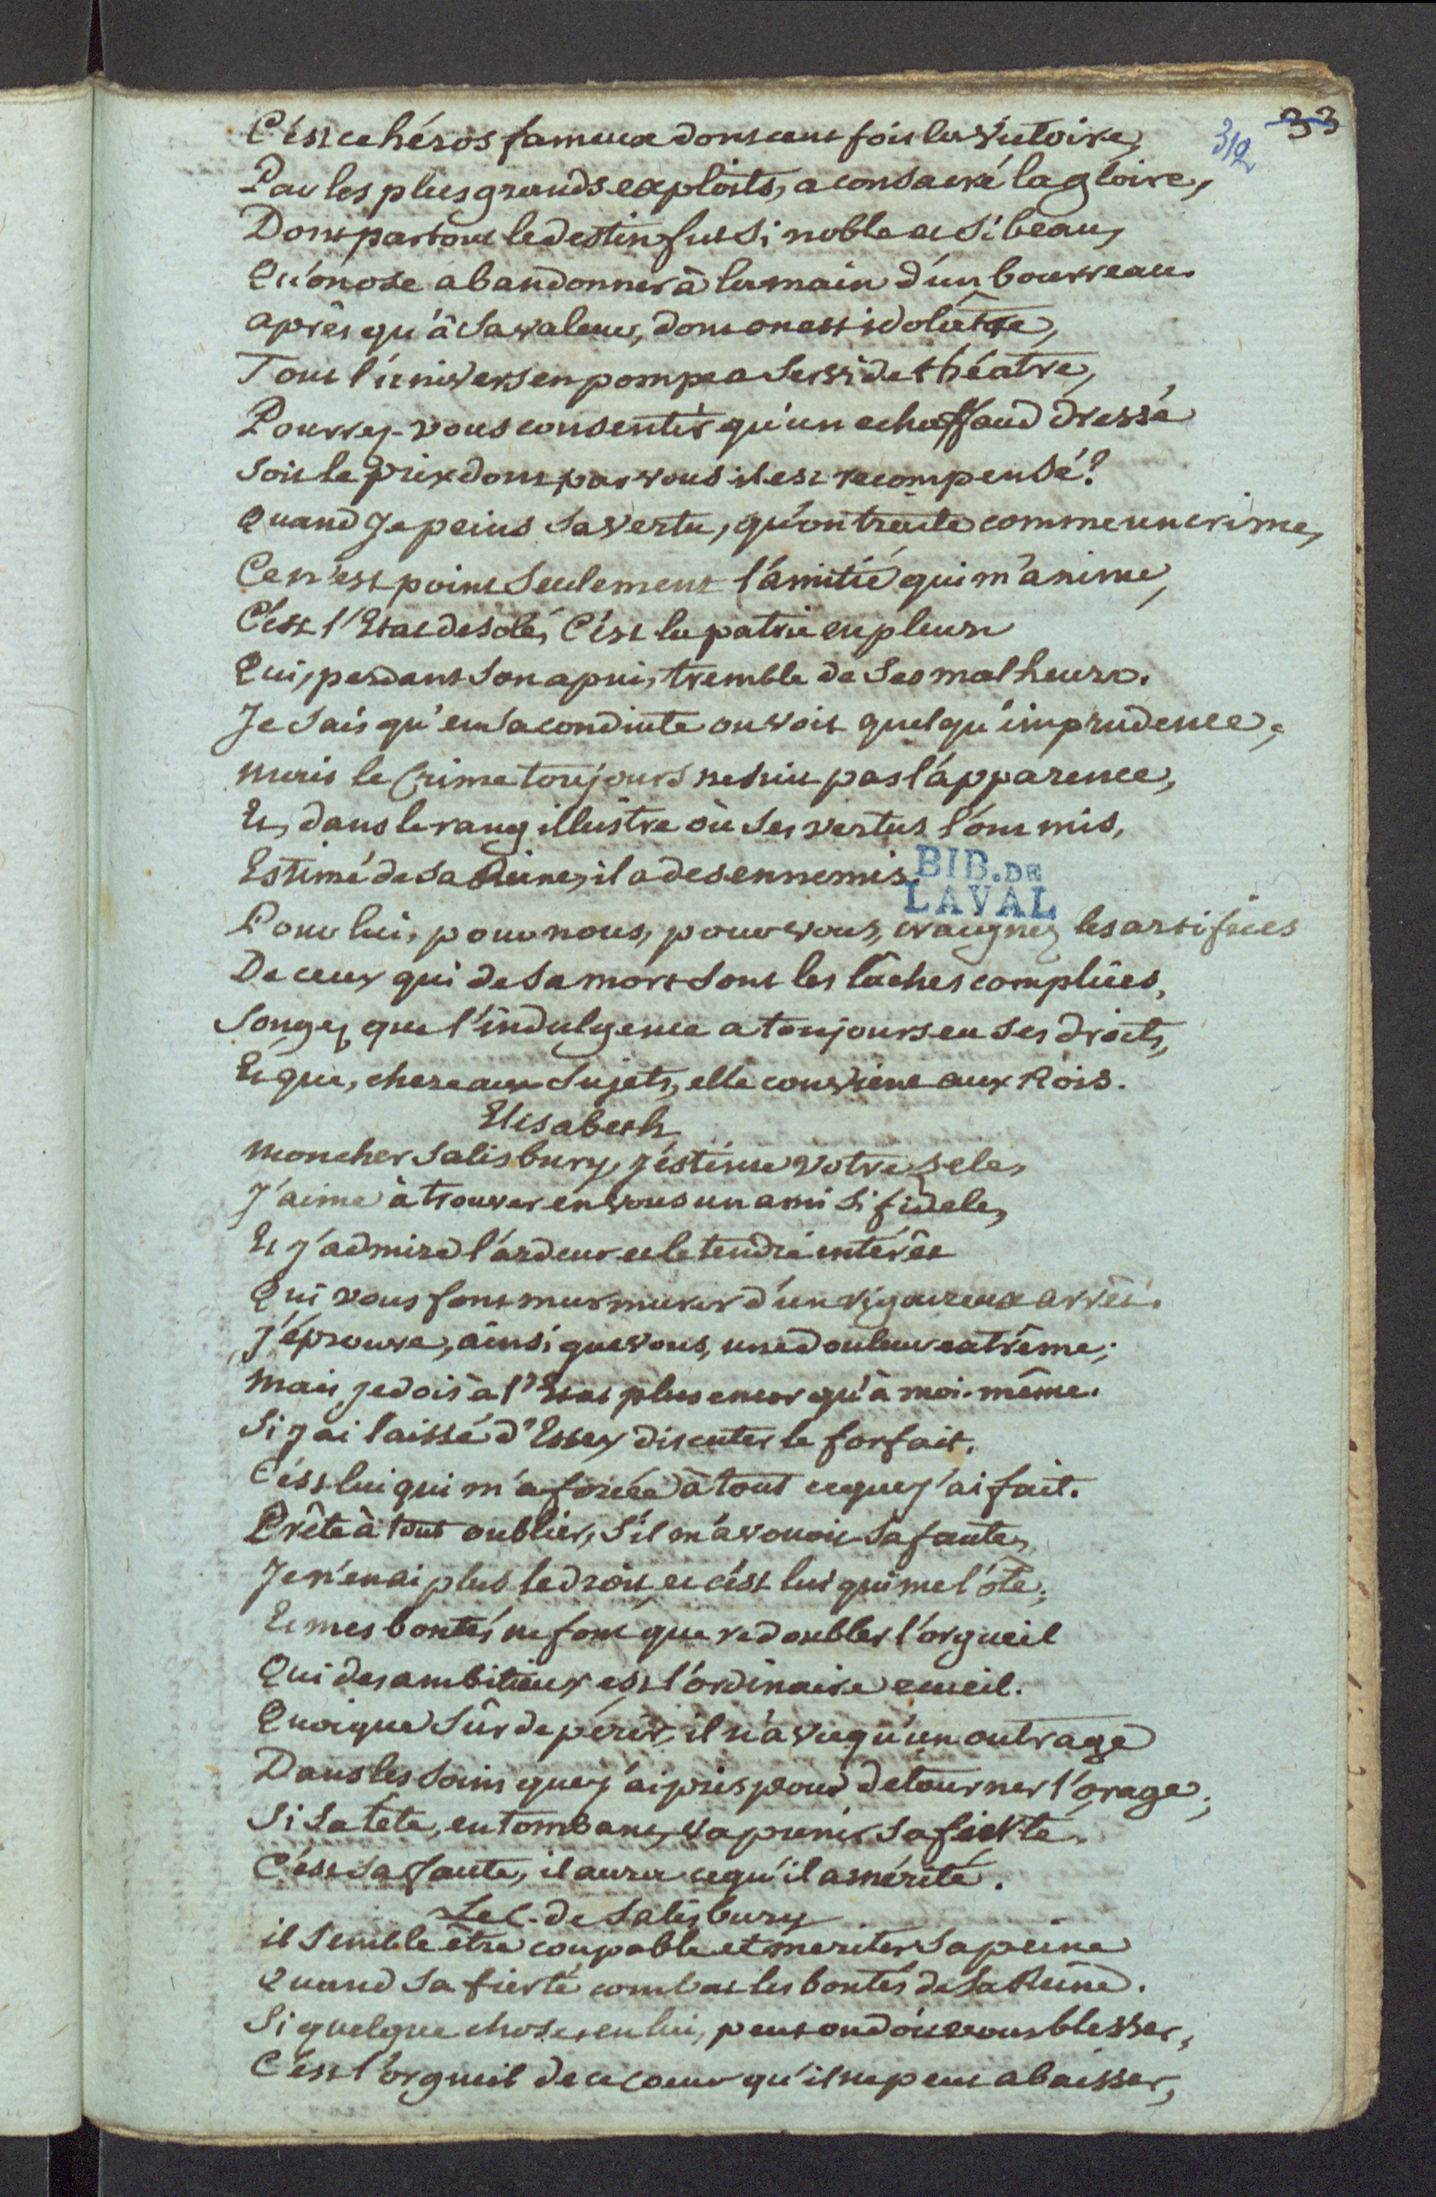 33
312
C'est ce héros fameux dont cent fois la victoire,
Par les plus grands exploits, a consacré la gloire,
Dont partout le destin fut si noble et si beau,
Qu'on ose abandonner à la main d'un bourreau.
après qu'à sa valeur, dont on est idolâtre,
Tout l'univers en pompe a servi de théatre,
Pourrez-vous consentir qu'un echaffaud dressé
soit le prix dont par vous il est recompensé?
Quand Je peins sa vertu, qu'on traite comme un crime,
Ce n'est point seulement l'amitié qui m'anime,
C'est l'Etat desolé, C'est la patrie en pleurs
Qui, perdant son apui, tremble de ses malheurs.
Je sais qu'en sa conduite on voit quelqu'imprudence;
mais le Crime toujours ne suit pas l'apparence,
Et, dans le rang illustre où ses vertus l'ont mis,
Estimé de sa Reine, il a des ennemis.
BIB. DE
LAVAL
Pour lui, pour nous, pour vous, craignez les artifices
De ceux qui de sa mort sont les lâches complices,
Songez que l'indulgence a toujours eu ses droits,
Et que, chere aux Sujets, elle convient aux Rois.
Elisabeth
mon cher Salisbury, j'éstime votre zele,
J'aime à trouver en vous un ami si fidele,
Et j'admire l'ardeur et le tendre intérêt
Qui vous font murmurer d'un rigoureux arrêt.
J'éprouve, ainsi que vous, une douleur extrême;
Mais je dois à l'Etat plus encor qu'à moi-même.
Si j'ai laissé d'Essex discuter le forfait,
C'ést lui qui m'a forcée à tout ce que j'ai fait.
Prête à tout oublier, s'il m'avouoit sa faute,
Je n'en ai plus le droit, et c'ést lui qui me l'ôte;
Et mes bontés ne font que redoubler l'orgueil
Qui des ambitieux est l'ordinaire ecueil.
Quoique sûr de périr, il n'a vu qu'un outrage
Dans les soins que j'ai pris pour detourner l'orage;
Si sa tête, en tombant, va punir sa fierté,
C'est sa faute, il aura ce qu'il a mérité.
Le C. de Salisbury
il semble être coupable et meriter sa peine
Quand sa fierté combat les bontés de sa Reine.
Si quelque chose, en lui, peut on doit vous blesser,
C'est l'orgueil de ce coeur qu'il ne peut abaisser,